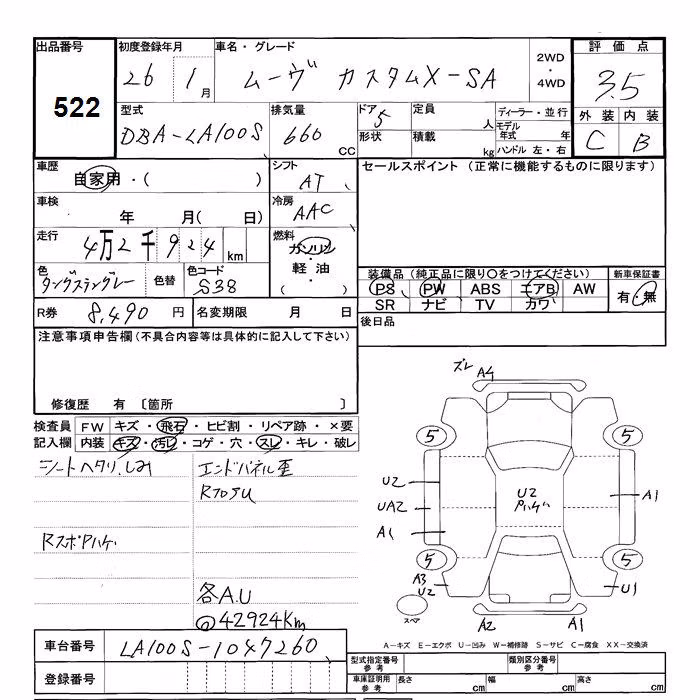 出品番号 初度登録年月 車名・グレード 2WD・4WD 評価点
522 26 1月 ムーヴ カスタムX-SA 3.5
型式 排気量 ドア 定員 ディーラー・並行 外装 内装
DBA-LA100S 660CC 5 人 モデル年式 年 C B
形状 積載 kg ハンドル 左・右
車歴 シフト セールスポイント (正常に機能するものに限ります)
自家用・( ) AT
車検 冷房
年 月( 日) AAC
走行 4万2千924km 燃料
ガソリン・軽油・( )
色 色替 色コード 装備品 (純正品に限り○をつけてください) 新車保証書
タングステングレー S38 PS PW ABS エアB AW 有・無
SR ナビ TV カワ
R券 8,490円 名変期限 月 日 後日品
注意事項申告欄 (不具合内容等は具体的に記入して下さい)
修復歴 有 [箇所 ]
検査員記入欄 FW キズ・飛石・ヒビ割・リペア跡・×要
内装 キズ・汚レ・コゲ・穴・スレ・キレ・破レ
シートヘタリ,しみ エンドパネル歪
RスポPハゲ
各A.U
@42924Km
ズレ A4
5 5
U2 U2 Pハゲ A1
UA2
A1
5 5
A3 U2 U1
スペア A2 A1
A－キズ E－エクボ U－凹み W－補修跡 S－サビ C－腐食 XX－交換済
車台番号 LA100S-1047260
型式指定番号 参考 類別区分番号 参考
登録番号 車庫証明用 参考 長さ cm 幅 cm 高さ cm